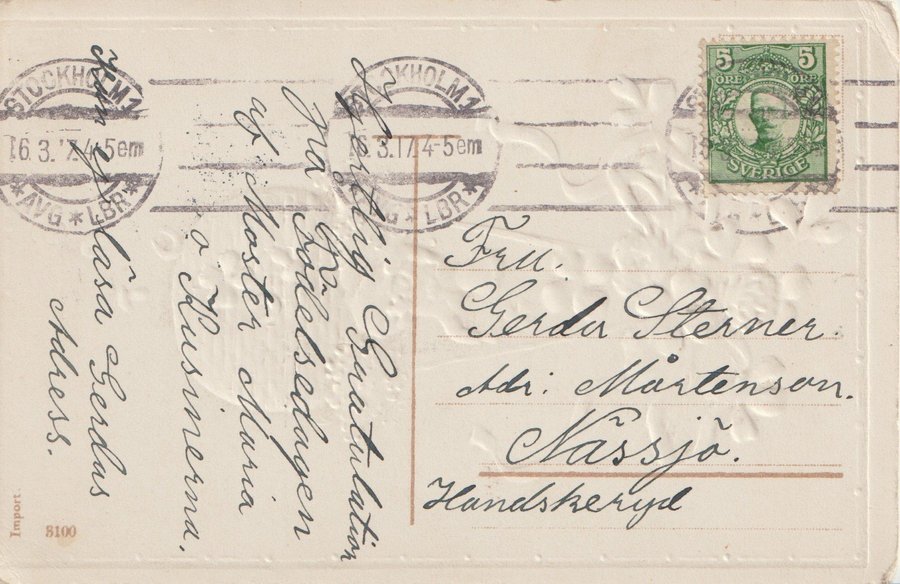 STOCKHOLM 1
16.3.17.4-5em
*AVG*LBR*
STOCKHOLM 1
16.3.17.4-5em
AVG*LBR*
5 5
ÖRE ÖRE
SVERIGE
Hjertlig Gratulation
På Födelsedagen
af Moster Maria
o Kusinerna.
Kan ej läsa Gerdas
Adress.
Fru.
Gerda Sterner.
Adr: Mårtenson.
Nässjö.
Handskeryd
Import.
3100